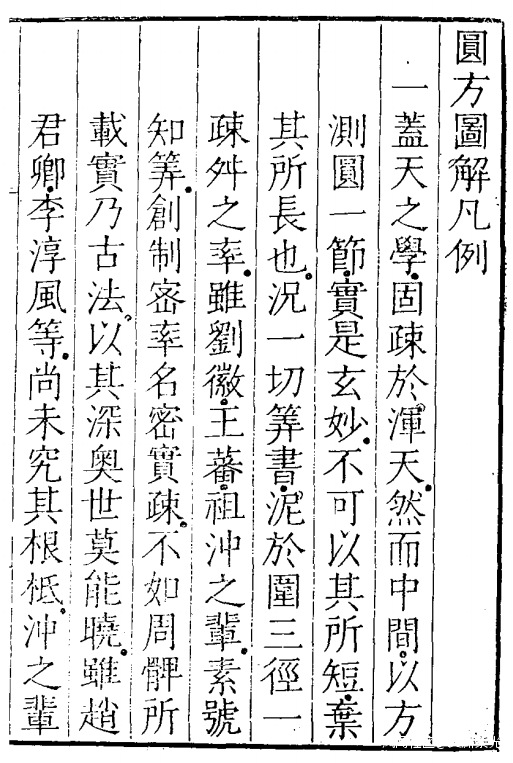 圓方圖解凡例
一蓋天之學固疎於渾天然而中間以方
測圓一節實是玄妙不可以其所短棄
其所長也況一切筭書泥於圍三徑一
疎舛之率雖劉徽王蕃祖沖之輩素號
知筭創制密率名密實疎不如周髀所
載實乃古法以其深奧世莫能曉雖趙
君卿李淳風等尚未究其根柢沖之輩